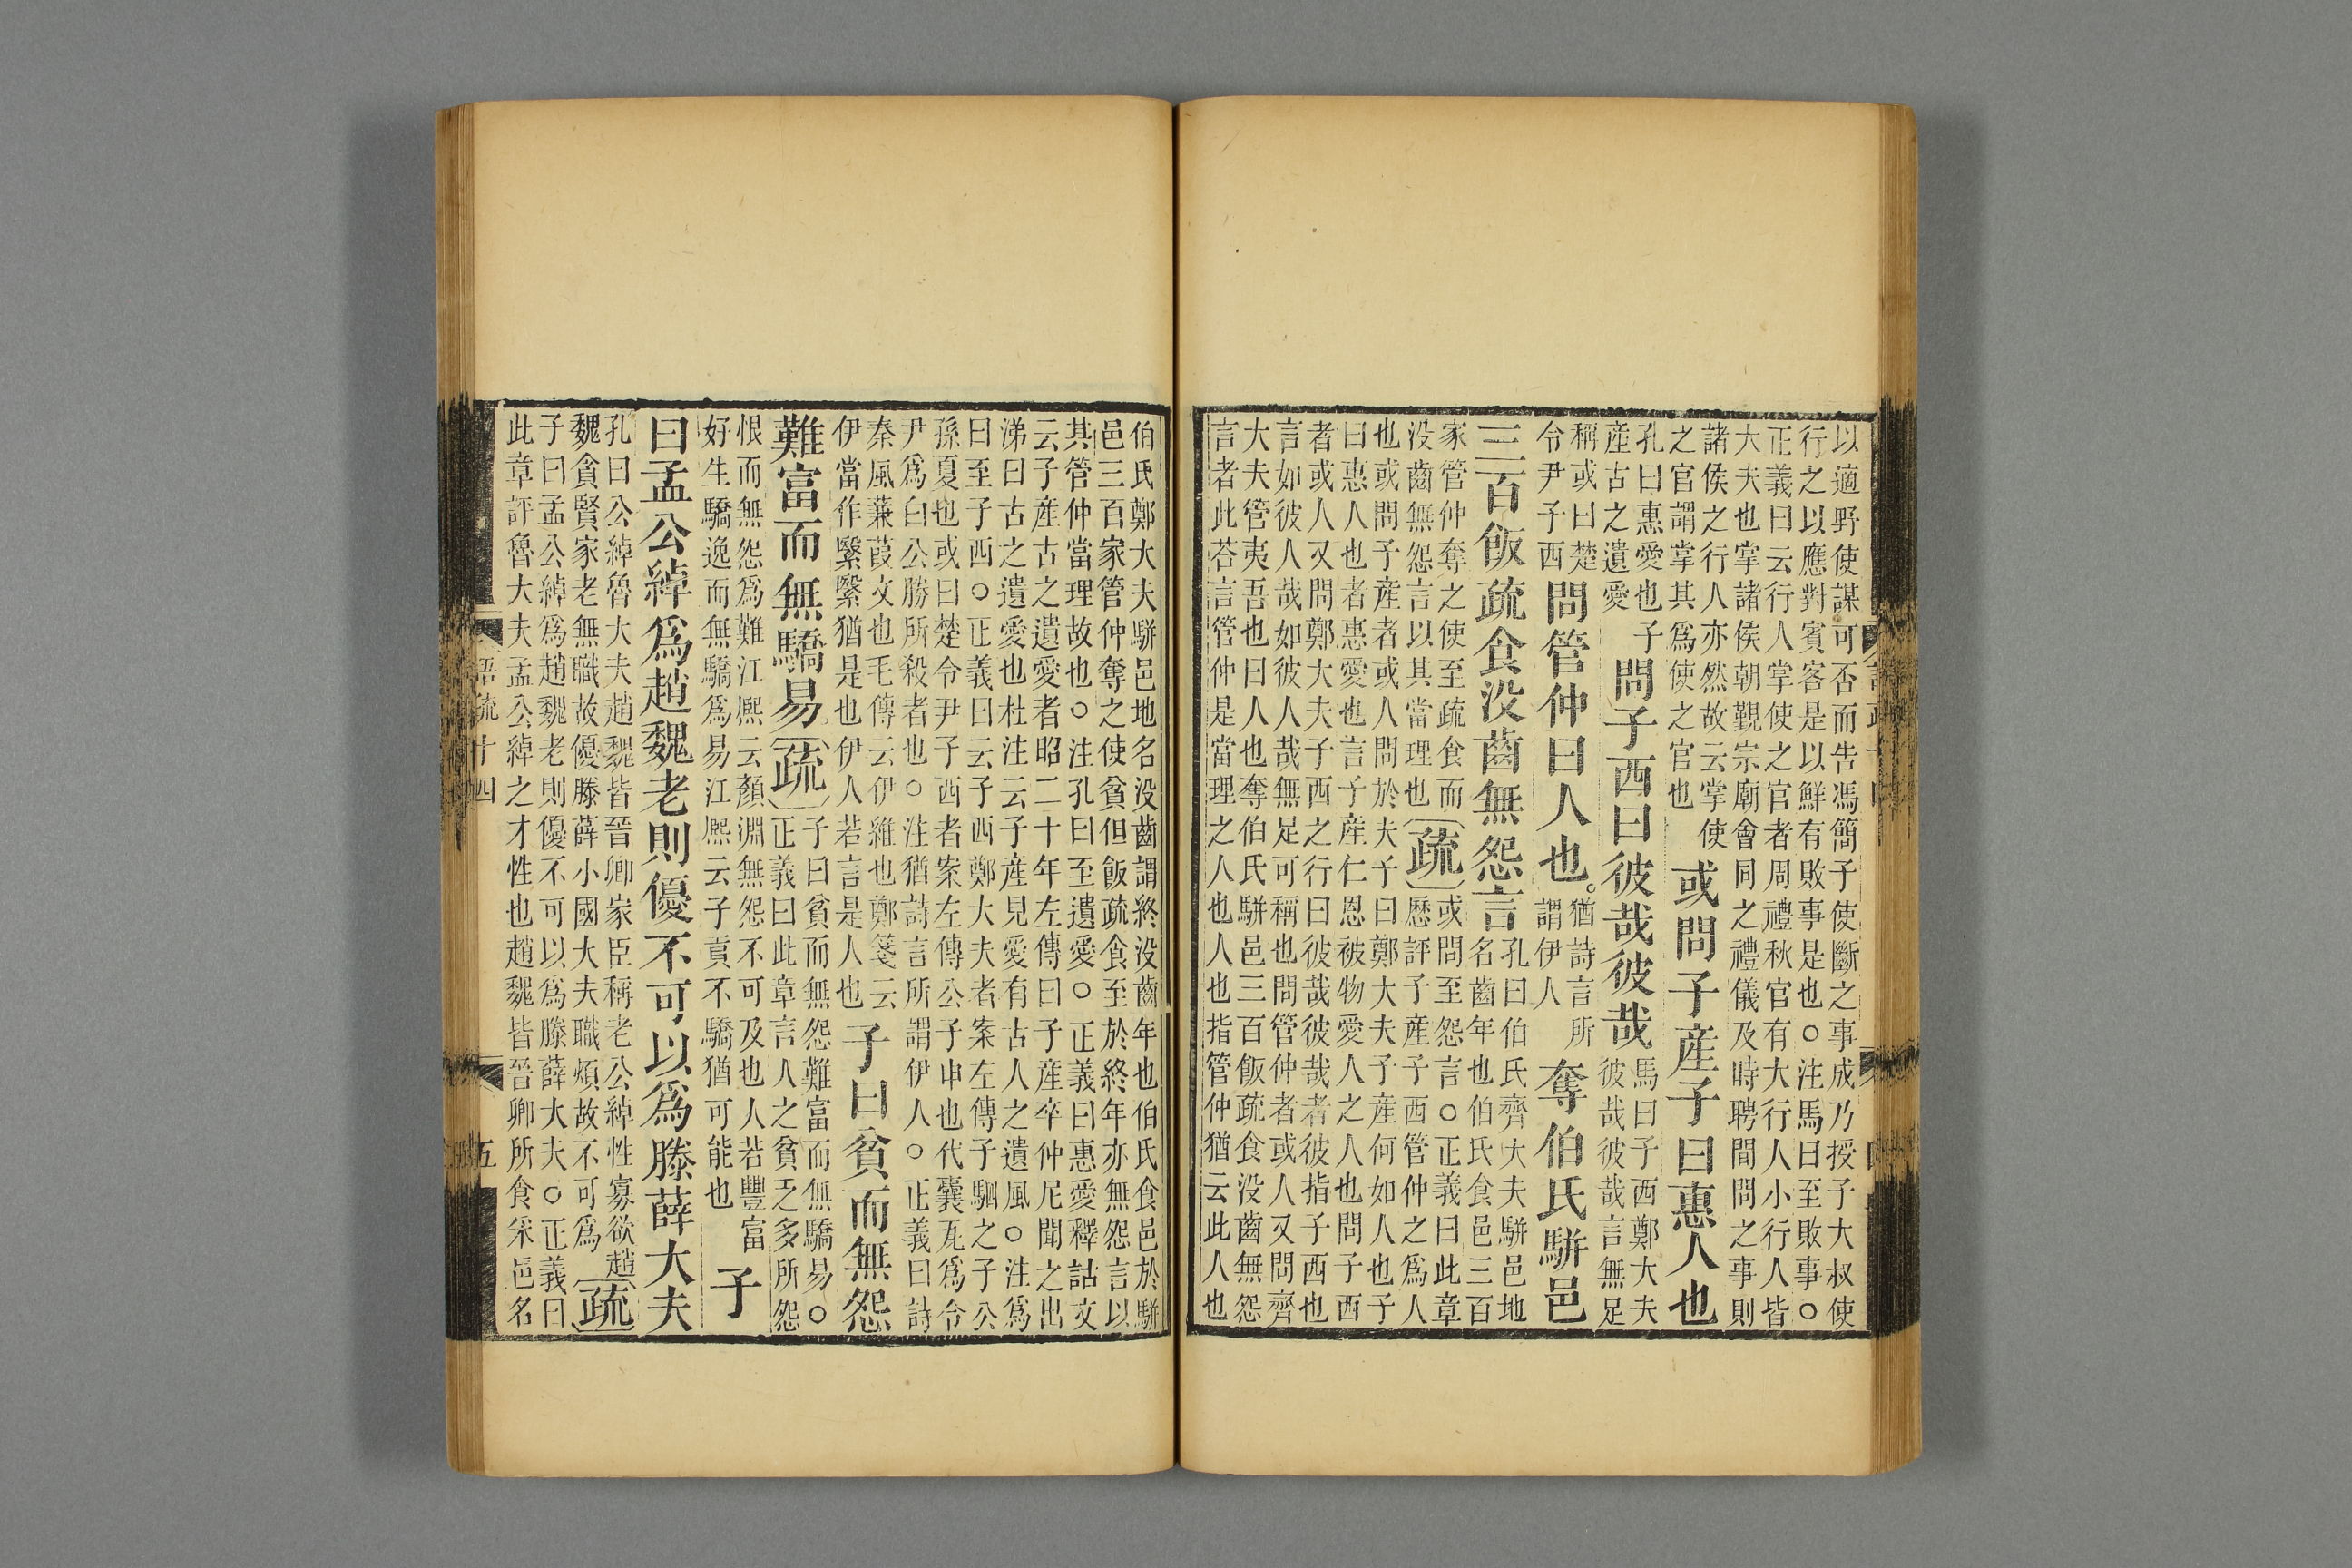 以適野使謀可否而告馮簡子使斷之事成乃授子大叔使
行之以應對賓客是以鮮有敗事是也○注馬曰至敗事○
正義曰云行人掌使之官者周禮秋官有大行人小行人皆
大夫也掌諸侯朝覲宗廟會同之禮儀及時聘間問之事則
諸侯之行人亦然故云掌使
之官謂掌其爲使之官也
或問子產子曰惠人也
孔曰惠愛也子
產古之遺愛
問子西曰彼哉彼哉
馬曰子西鄭大夫
彼哉彼哉言無足
稱或曰楚
令尹子西
問管仲曰人也。
猶詩言所
謂伊人
奪伯氏駢邑
三百飯疏食没齒無怨言
孔曰伯氏齊大夫駢邑地
名齒年也伯氏食邑三百
家管仲奪之使至疏食而
没齒無怨言以其當理也
疏
或問至怨言○正義曰此章
歷評子產子西管仲之爲人
也或問子產者或人問於夫子曰鄭大夫子產何如人也子
曰惠人也者惠愛也言子產仁恩被物愛人之人也問子西
者或人又問鄭大夫子西之行曰彼哉彼哉者彼指子西也
言如彼人哉如彼人哉無足可稱也問管仲者或人又問齊
大夫管夷吾也曰人也奪伯氏駢邑三百飯疏食没齒無怨
言者此荅言管仲是當理之人也人也指管仲猶云此人也
伯氏鄭大夫駢邑地名没齒謂終没齒年也伯氏食邑於駢
邑三百家管仲奪之使貧但飯疏食至於終年亦無怨言以
其管仲當理故也○注孔曰至遺愛○正義曰惠愛釋詁文
云子產古之遺愛者昭二十年左傳曰子產卒仲尼聞之出
涕曰古之遺愛也杜注云子產見愛有古人之遺風○注爲
曰至子西○正義曰云子西鄭大夫者案左傳子駟之子公
孫夏也或曰楚令尹子西者案左傳公子申也代囊瓦爲令
尹爲白公勝所殺者也○注猶詩言所謂伊人○正義曰詩
秦風蒹葭文也毛傳云伊維也鄭箋云
伊當作繄繄猶是也伊人若言是人也
子曰貧而無怨
難富而無驕易
疏
子曰貧而無怨難富而無驕易○
正義曰此章言人之貧乏多所怨
恨而無怨爲難江熙云顏淵無怨不可及也人若豐富
好生驕逸而無驕爲易江熙云子貢不驕猶可能也
子
曰孟公綽爲趙魏老則優不可以爲滕薛大夫
孔曰公綽魯大夫趙魏皆晉卿家臣稱老公綽性寡欲趙
魏貪賢家老無職故優滕薛小國大夫職煩故不可爲
疏
子曰孟公綽爲趙魏老則優不可以爲滕薛大夫○正義曰
此章評魯大夫孟公綽之才性也趙魏皆晉卿所食采邑名
語疏十四
五